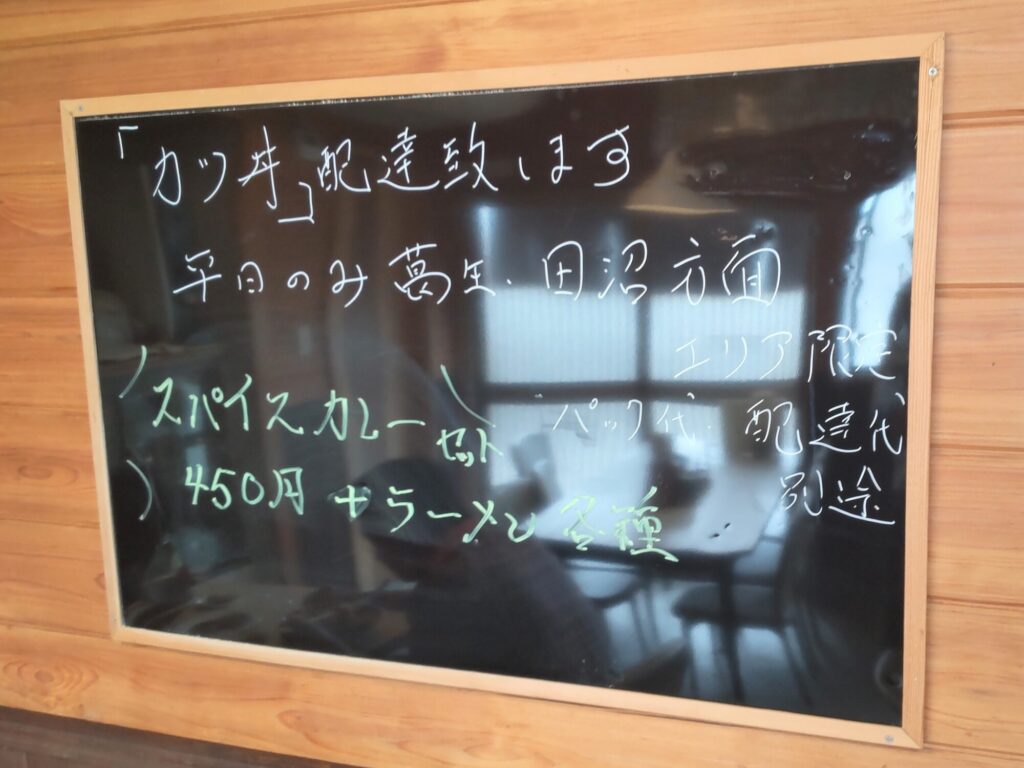 「カツ丼」配達致します
平日のみ 葛生・田沼方面
エリア限定
パック代・配達代
別途
スパイスカレーセット
450円+ラーメン各種